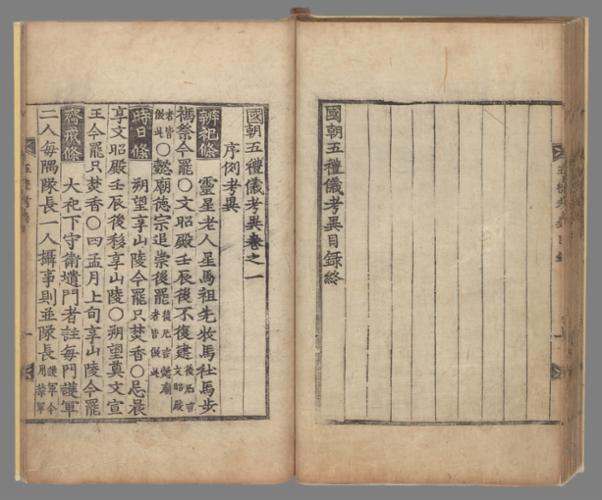 國朝五禮儀考異目錄終
國朝五禮儀考異卷之一
序例考異
辨祀條 靈星老人星馬祖先牧馬社馬步
禡祭今罷○文昭殿壬辰後不復建後凡言文昭殿
者皆倣此○懿廟德宗追崇後罷後凡言懿廟者皆倣此
時日條 朔望享山陵今罷只焚香○忌晨
享文昭殿壬辰後移享山陵○朔望奠文宣
王今罷只焚香○四孟月上旬享山陵今罷
齊戒條 大祀下守衛壝門者註每門護軍
二人每隅隊長一人攝事則並隊長護軍今用禁軍